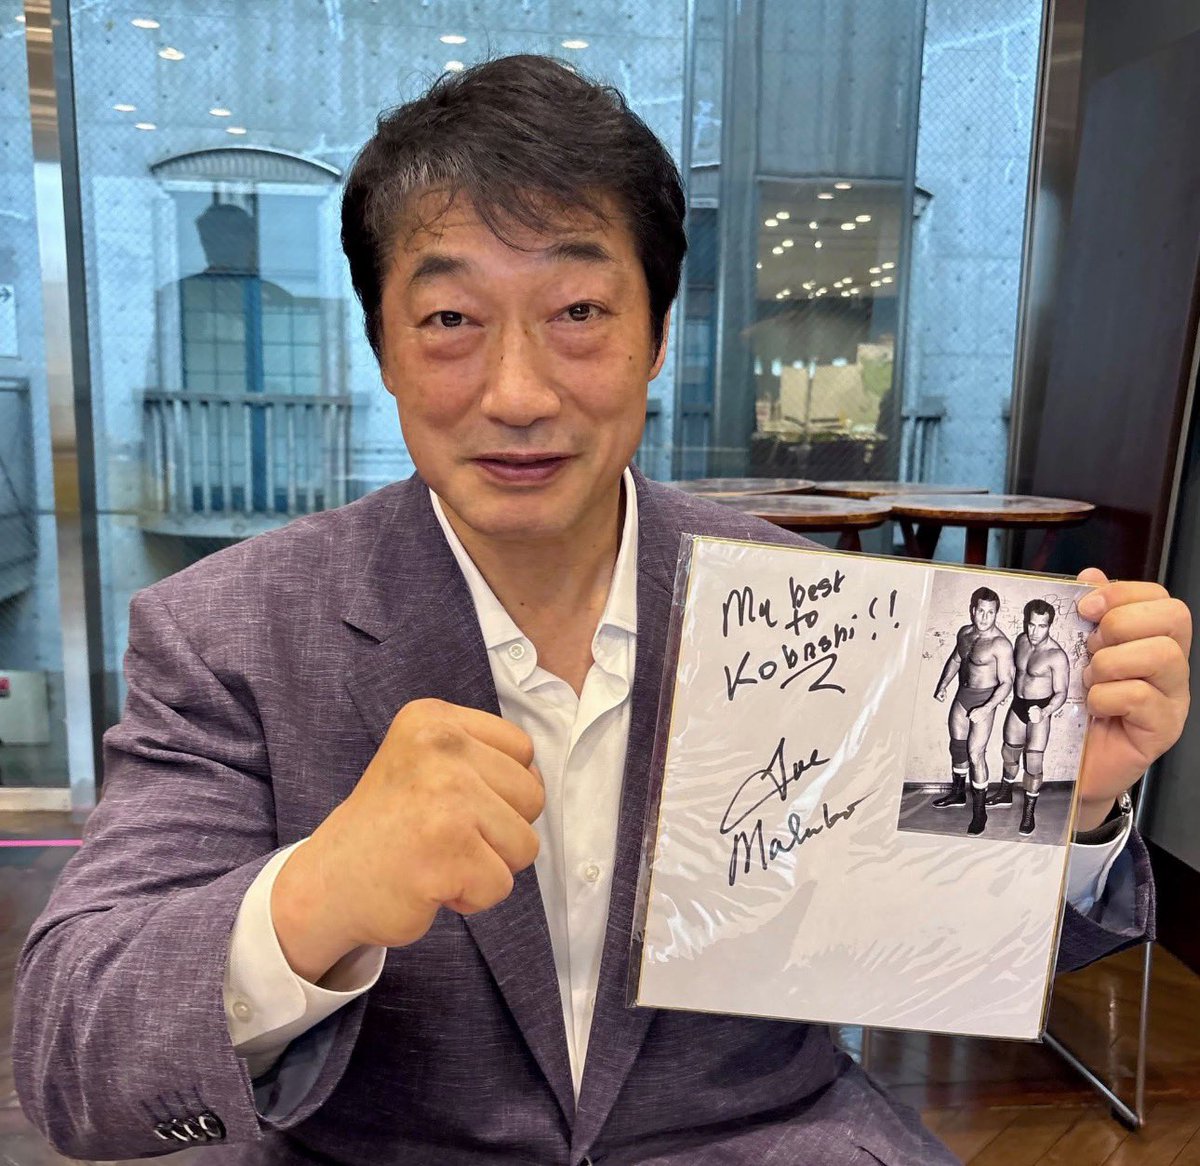 My best
to
Kobashi!!
Joe
Malenko